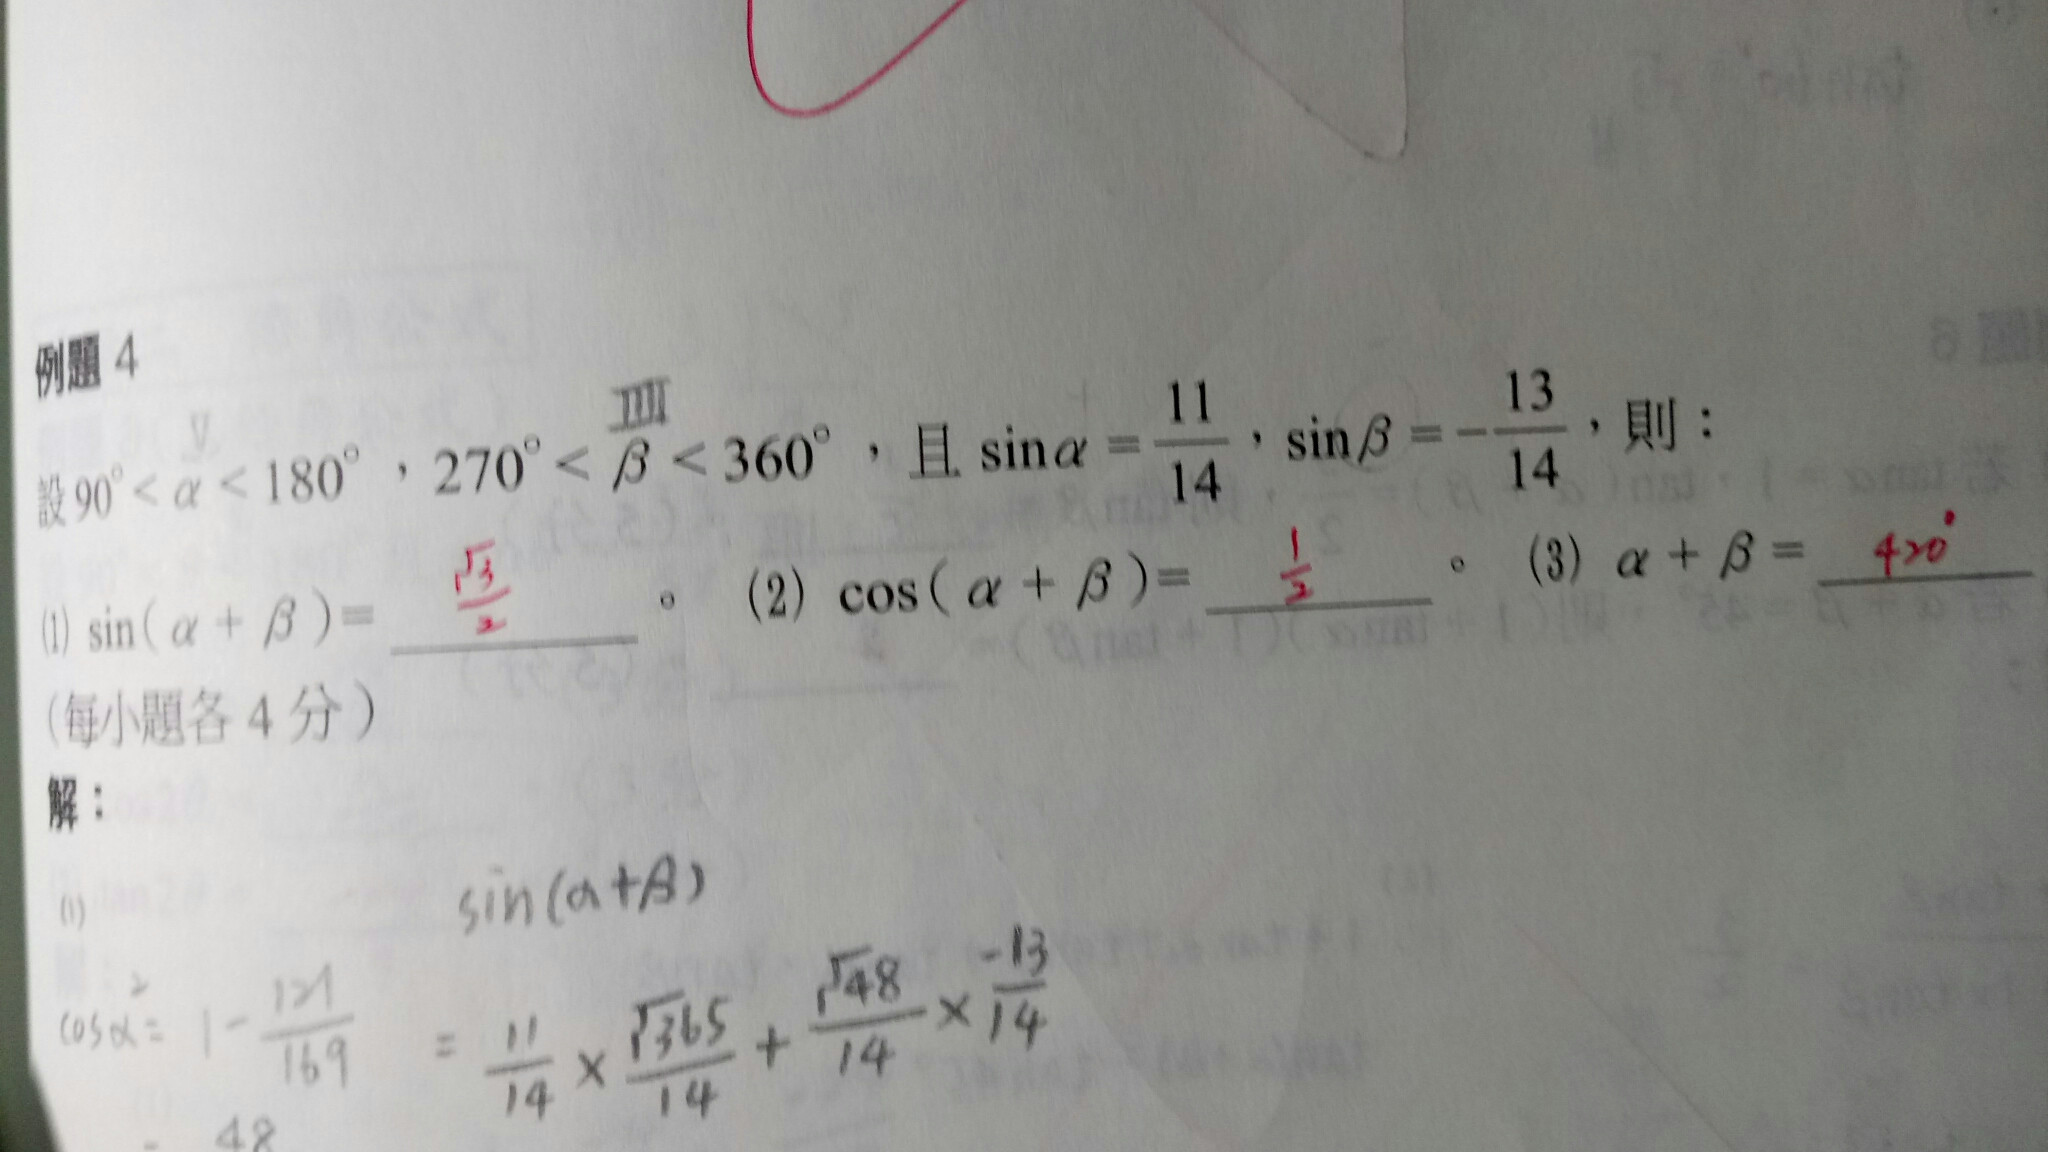 例題 4
設 90° < α < 180°，270° < β < 360°，且 sinα = 11/14，sinβ = -13/14，則：
IIII
(1) sin( α + β )= √3/2 。 (2) cos( α + β )= 1/2 。 (3) α + β = 420°
(每小題各 4 分)
解：
(1) sin(α+β)
cos²α = 1 - 121/169 = 11/14 × √365/14 + √48/14 × -13/14
48